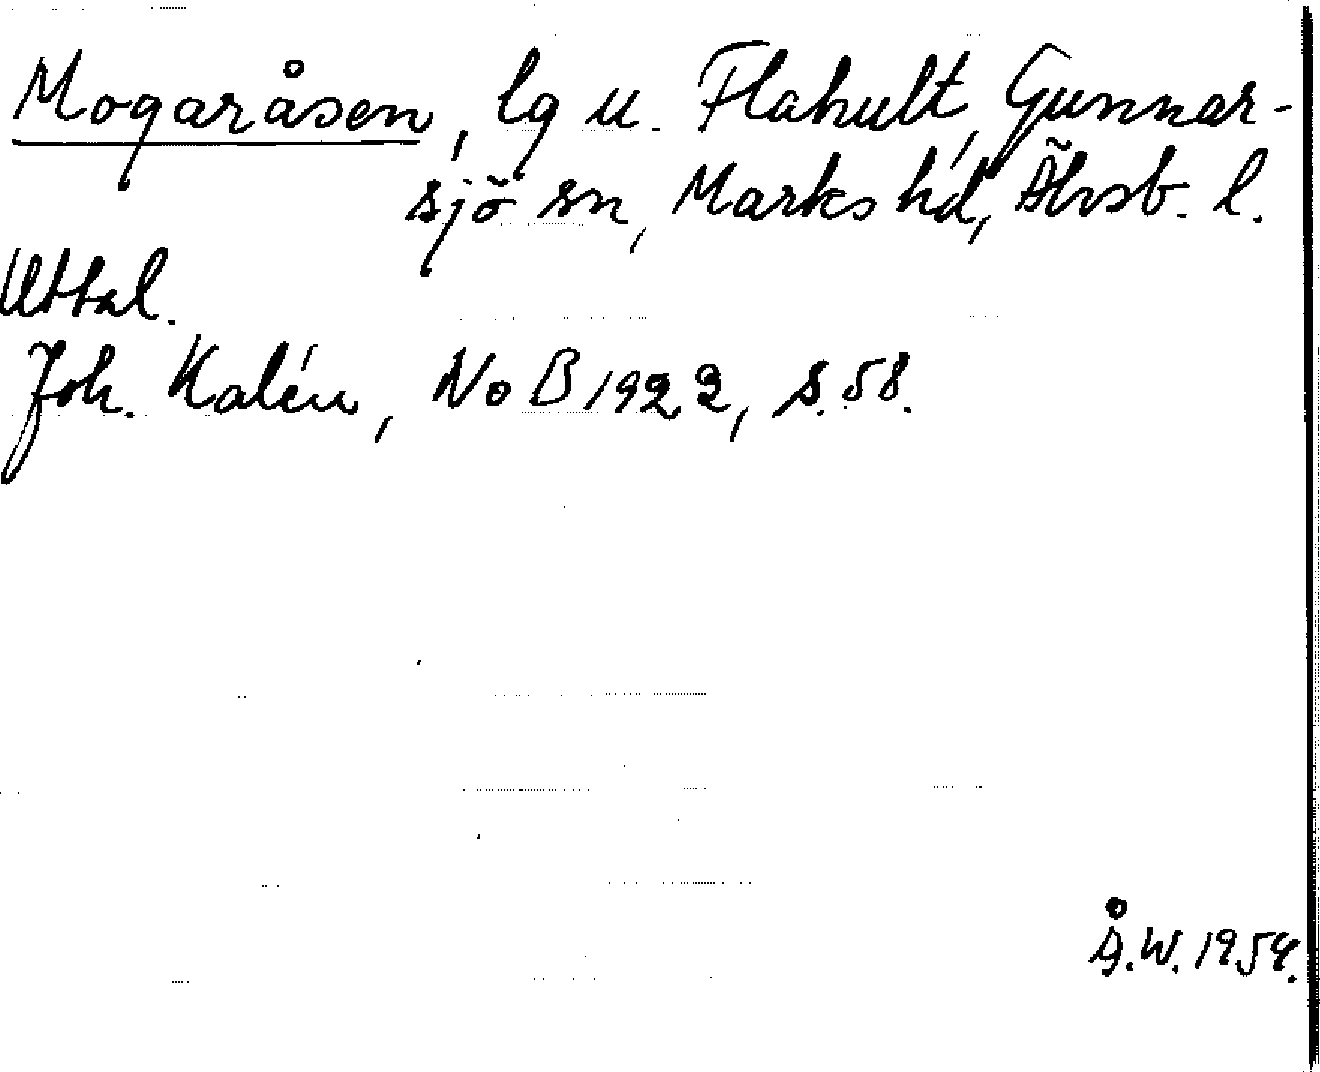 Mogaråsen, lg u. Flahult, Gunnar-
sjö sn, Marks hd, Älvsb. l.
Uttal.
Joh. Kalén, NoB 1922, s. 58.
Å.W. 1954.